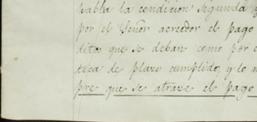 habla la condicion segunda y
por el Señor acreedor el pago
ditos que se deban como por
teca de plazo cumplido, y lo
pre que se atrase el pago